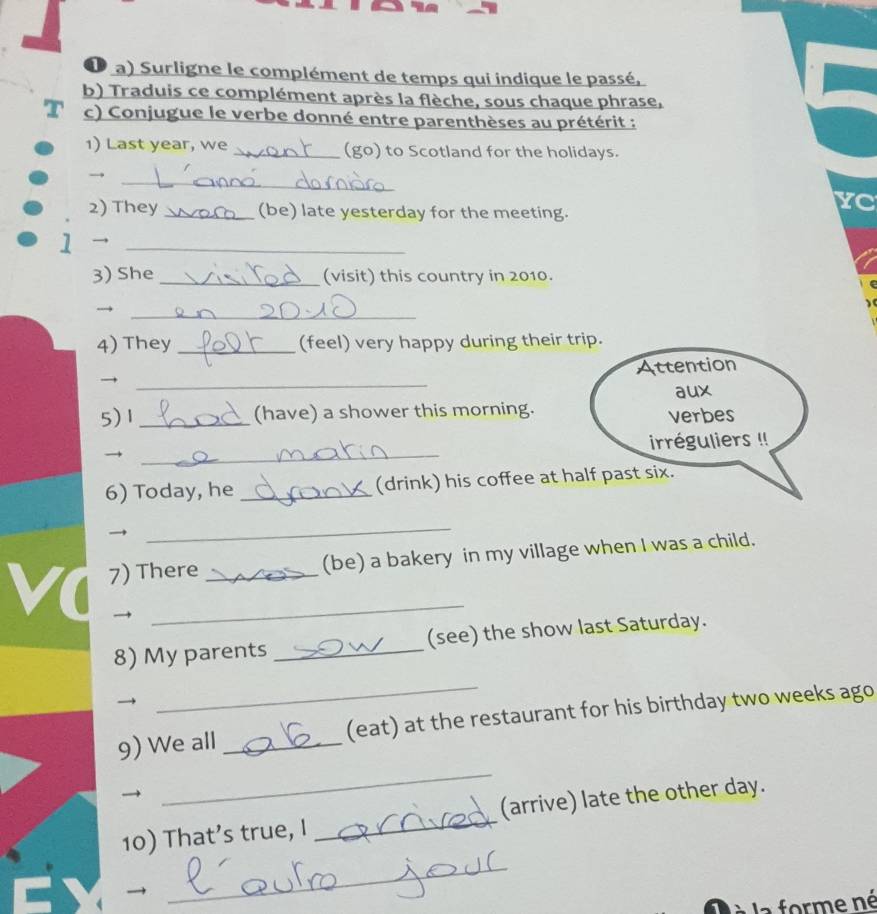 ❶ a) Surligne le complément de temps qui indique le passé,
b) Traduis ce complément après la flèche, sous chaque phrase,
T c) Conjugue le verbe donné entre parenthèses au prétérit :
1) Last year, we went (go) to Scotland for the holidays.
→ L'anné dernière
YC
2) They were (be) late yesterday for the meeting.
1 →
3) She visited (visit) this country in 2010.
→ en 2010
4) They felt (feel) very happy during their trip.
→
Attention
aux
verbes
irréguliers !!
5) I had (have) a shower this morning.
→ ce matin
6) Today, he drank (drink) his coffee at half past six.
→
VO
7) There was (be) a bakery in my village when I was a child.
→
8) My parents sow (see) the show last Saturday.
→
9) We all ate (eat) at the restaurant for his birthday two weeks ago
→
10) That's true, I arrived (arrive) late the other day.
→ l'autre jour
EX
❶ à la forme né